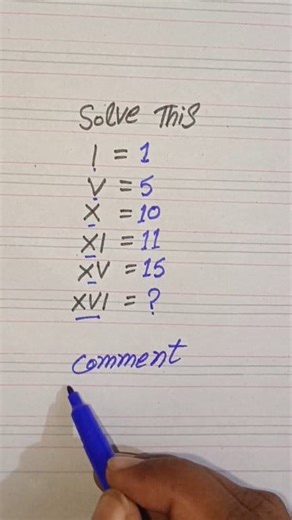 Solve This
I = 1
V = 5
X = 10
XI = 11
XV = 15
XVI = ?
comment